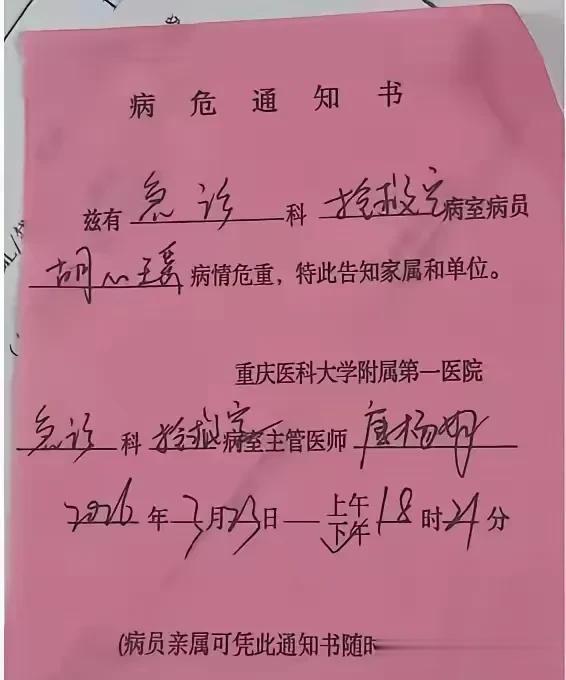 病危通知书
兹有 急诊 科 抢救室 病室病员
胡心瑗 病情危重，特此告知家属和单位。
重庆医科大学附属第一医院
急诊 科 抢救室 病室主管医师
2026 年 3 月 23 日 上午
下午 18 时 21 分
(病员亲属可凭此通知书随时